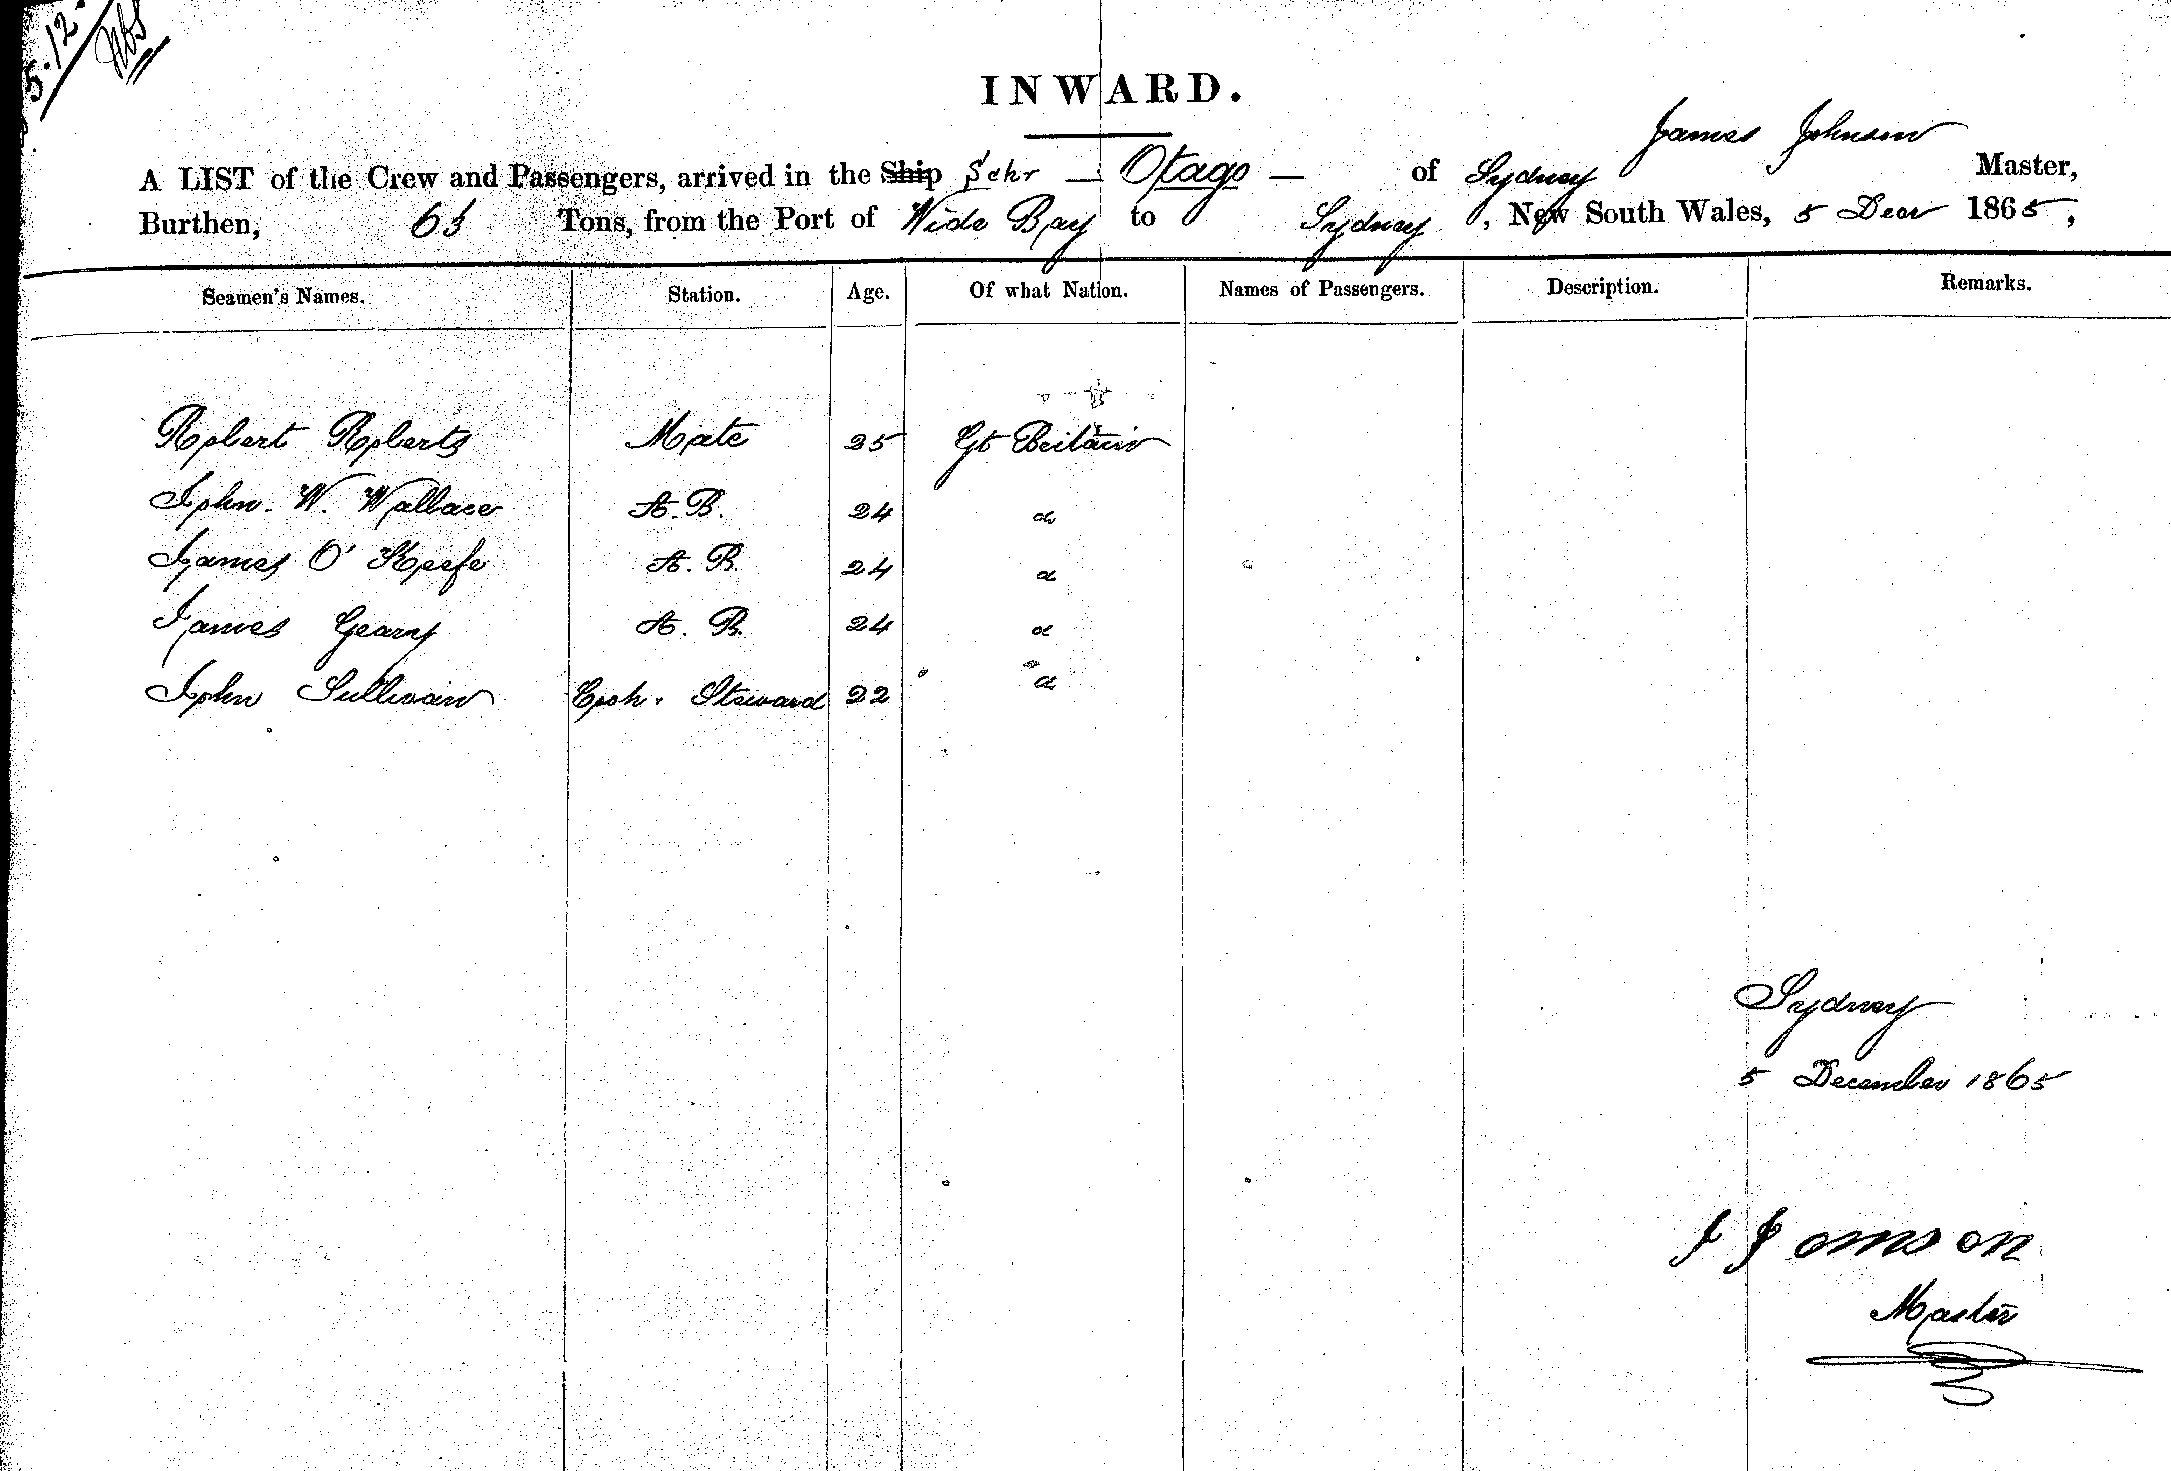 5.12.
INWARD.
James Johnson
A LIST of the Crew and Passengers, arrived in the Ship Schr — Otago — of Sydney Master,
Burthen, 63 Tons, from the Port of Wide Bay to Sydney, New South Wales, 5 Decr 1865,
Seamen's Names. Station. Age. Of what Nation. Names of Passengers. Description. Remarks.
Robert Roberts Mate 25 Gt Britain
John. W. Wallace A.B. 24 a
James O'Keefe A.B. 24 a
James Geary A.B. 24 a
John Sullivan Cook. Steward 22 a
Sydney
5 December 1865
J Jomson
Master